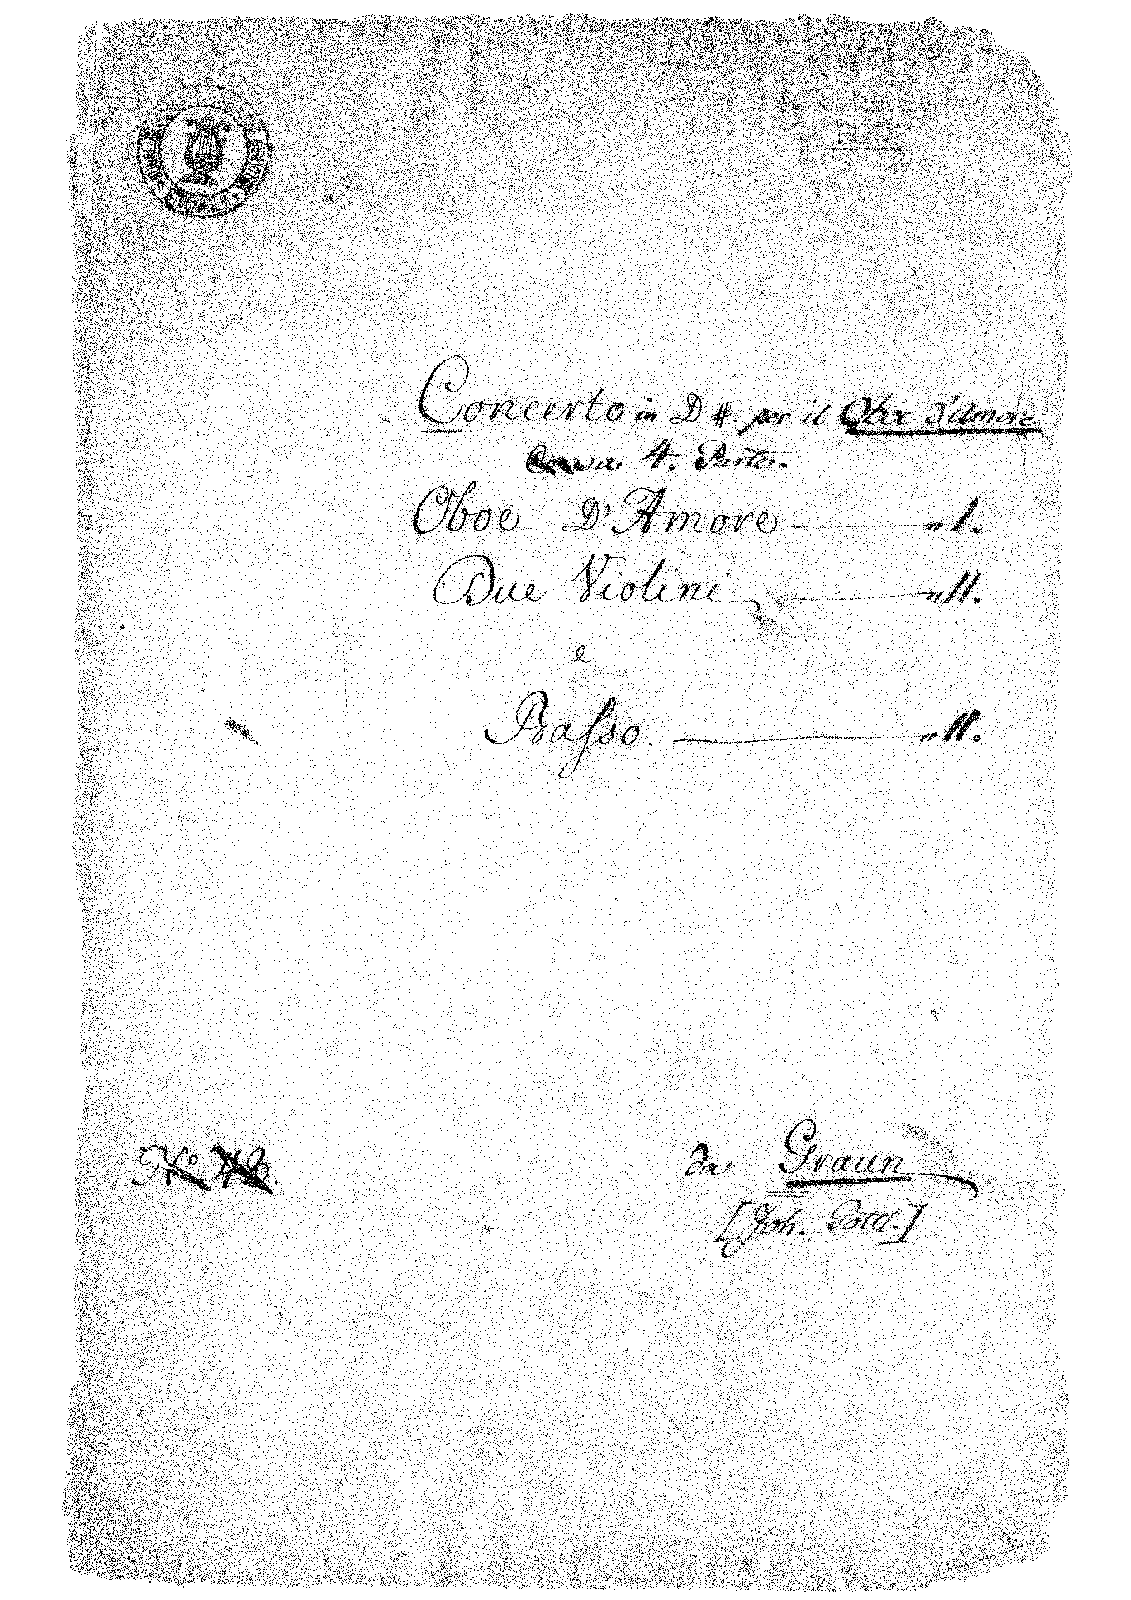 Concerto in D #. per il Oboe d'Amore
4.
Oboe D'Amore 1.
Due Violini 11.
e
Basso. 11.
No
da Graun
[Joh. Gottl.]